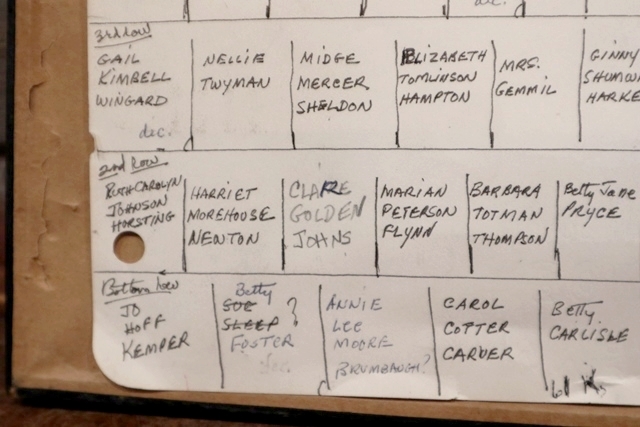 dec.
3rd row
GAIL KIMBELL WINGARD dec.
NELLIE TWYMAN
MIDGE MERCER SHELDON
ELIZABETH TOMLINSON HAMPTON
MRS. GEMMIL
GINNY
2nd Row
RUTH CAROLYN JOHNSON HORSTING
HARRIET MOREHOUSE NEWTON
CLAIRE GOLDEN JOHNS
MARIAN PETERSON FLYNN
BARBARA TOTMAN THOMPSON
Betty Jane PRYCE
Bottom row
JO HOFF KEMPER
Betty SUE SLEEP ? FOSTER dec.
ANNIE LEE MOORE BRUMBAUGH?
CAROL COTTER CARVER
Betty CARLISLE